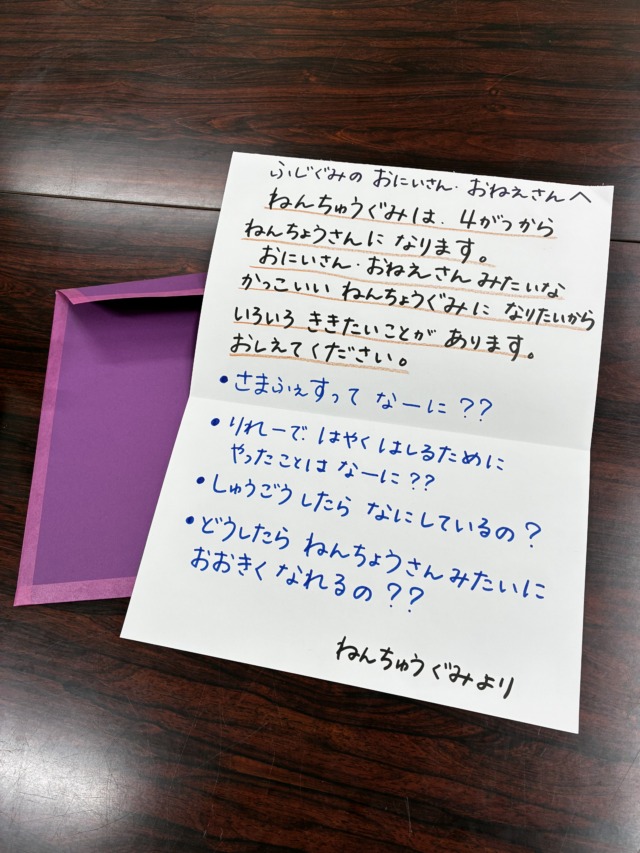 ふじぐみの おにいさん・おねえさんへ
ねんちゅうぐみは、4がつから
ねんちょうさんに なります。
おにいさん・おねえさん みたいな
かっこいい ねんちょうぐみに なりたいから
いろいろ ききたいことが あります。
おしえてください。
•さまふぇすって なーに??
•りれーで はやく はしるために
やったことは なーに??
•しゅうごうしたら なにしているの?
•どうしたら ねんちょうさんみたいに
おおきく なれるの??
ねんちゅうぐみより